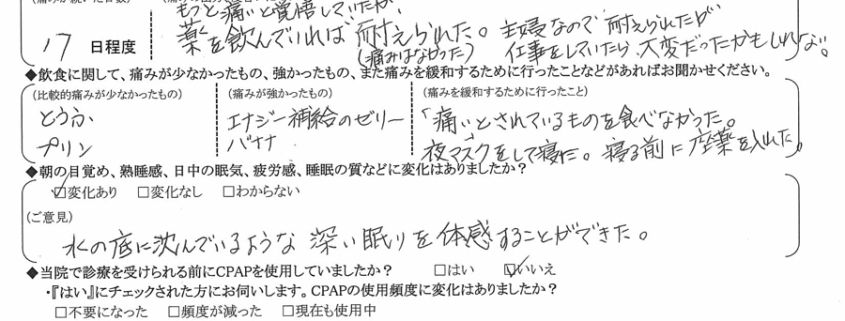 もっと痛いと覚悟していたが、
薬を飲んでいれば耐えられた。主婦なので耐えられたが
17 日程度
(痛みはなかった) 仕事をしていたら大変だったかもしれない。
◆飲食に関して、痛みが少なかったもの、強かったもの、また痛みを緩和するために行ったことなどがあればお聞かせください。
(比較的痛みが少なかったもの) (痛みが強かったもの) (痛みを緩和するために行ったこと)
とうふ エナジー補給のゼリー 「痛い」とされているものを食べなかった。
プリン バナナ 夜マスクをして寝た。寝る前に座薬を入れた。
◆朝の目覚め、熟睡感、日中の眠気、疲労感、睡眠の質などに変化はありましたか？
☑変化あり □変化なし □わからない
(ご意見)
水の底に沈んでいるような深い眠りを体感することができた。
◆当院で診療を受けられる前にCPAPを使用していましたか？ □はい ☑いいえ
・『はい』にチェックされた方にお伺いします。CPAPの使用頻度に変化はありましたか？
□不要になった □頻度が減った □現在も使用中